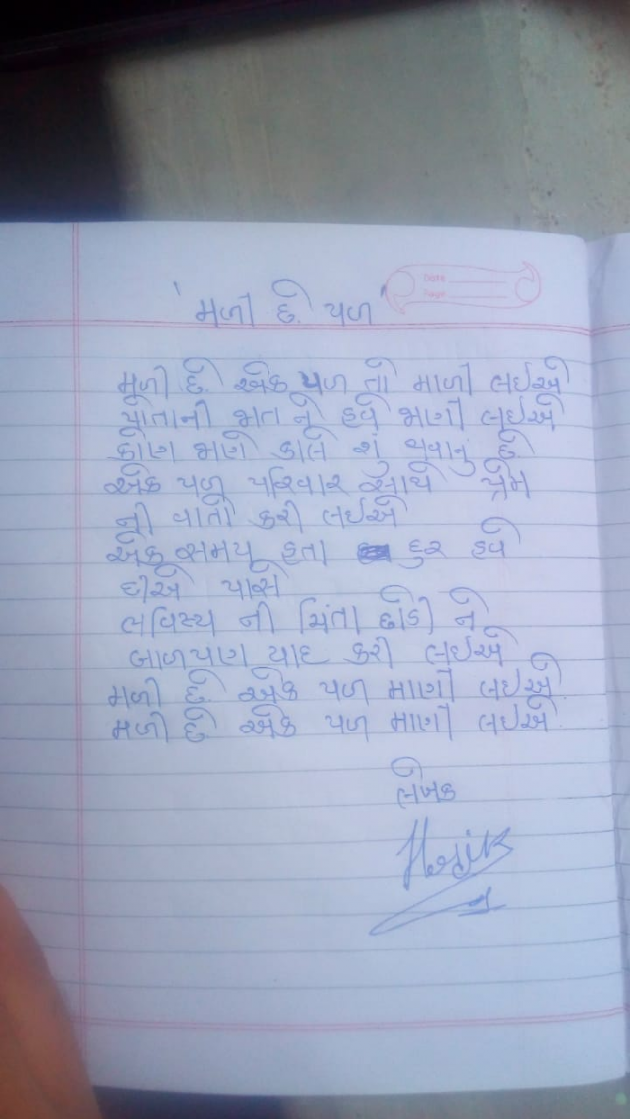 'મળી છે પળ'
Date
Page
મળી છે એક પળ તો માળી લઈએ
પોતાની જાત ને હવે જાણી લઈએ
કોણ જાણે કાલે શું થવાનું છે
એક પળ પરિવાર સાથે પ્રેમ
ની વાતો કરી લઈએ
એક સમય હતા દુર હવે
છીએ પાસે
ભવિસ્ય ની ચિંતા છોડી ને
બાળપણ યાદ કરી લઈએ
મળી છે એક પળ માણી લઈએ
મળી છે એક પળ માણી લઈએ
લેખક
Hardik